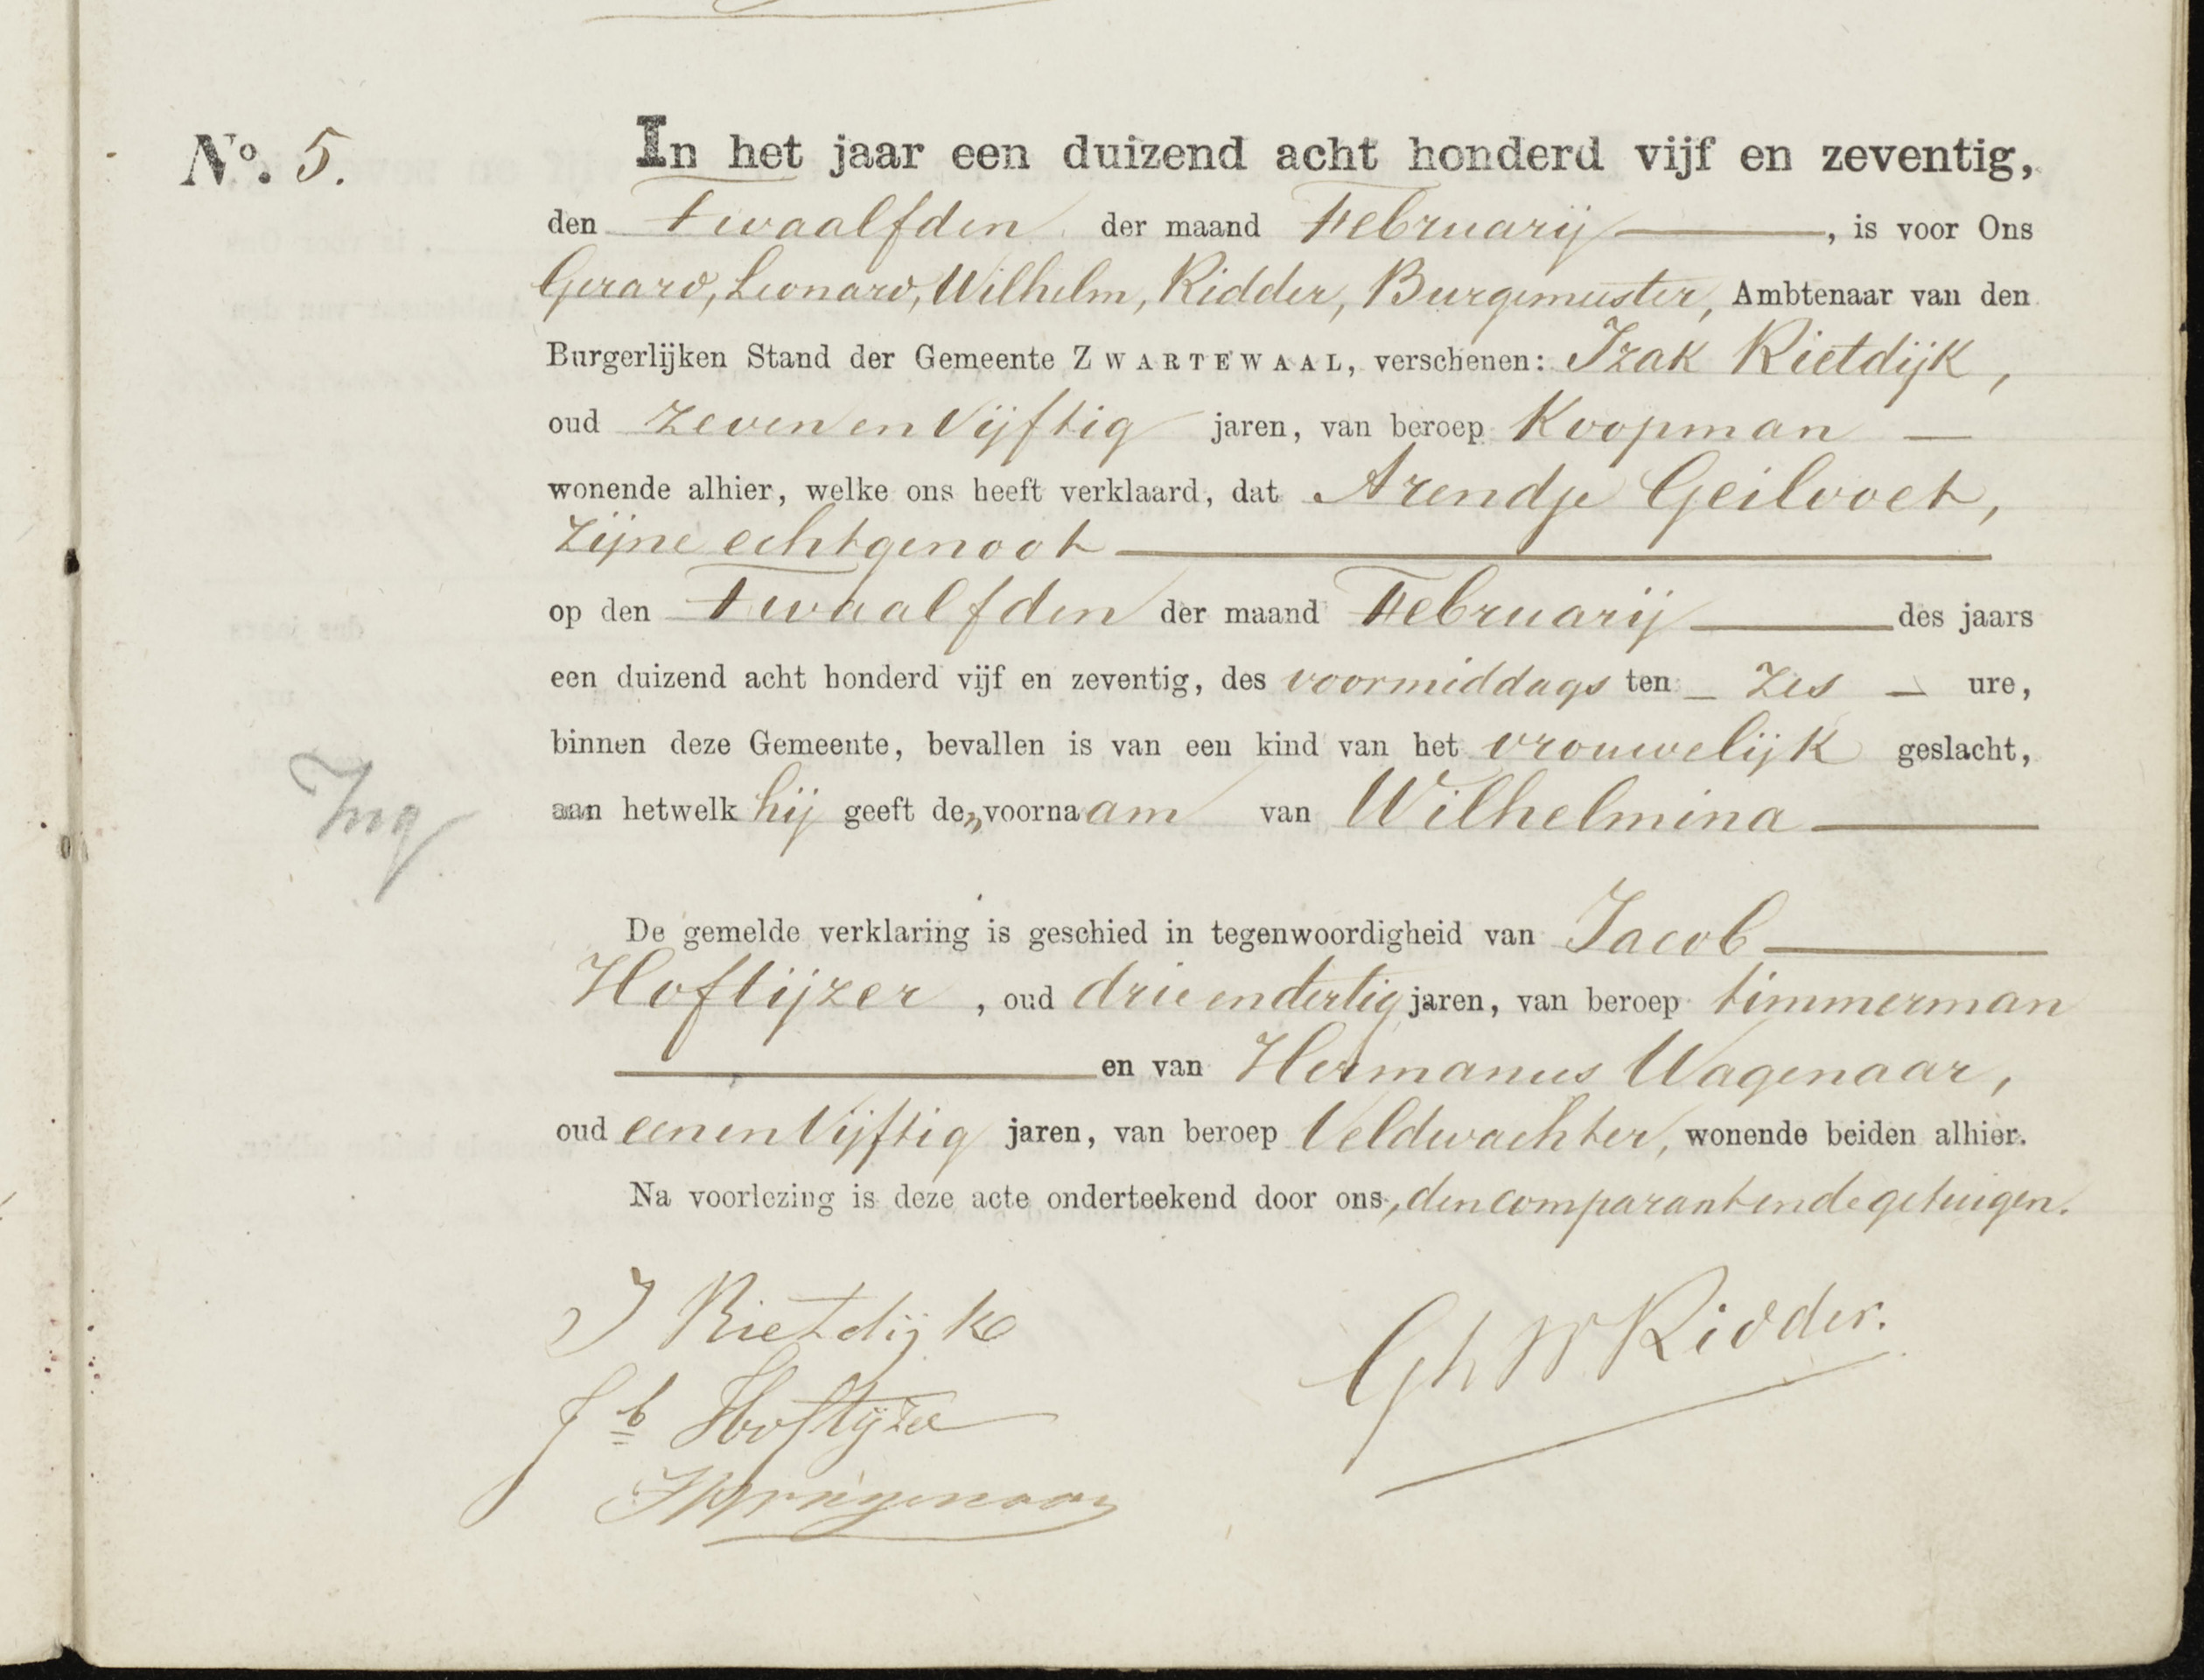 No. 5.
In het jaar een duizend acht honderd vijf en zeventig,
den Twaalfden der maand Februarij, is voor Ons
Gerard, Leonard, Wilhelm, Ridder, Burgemeester, Ambtenaar van den
Burgerlijken Stand der Gemeente ZWARTEWAAL, verschenen: Izak Rietdijk,
oud zeven en Vijftig jaren, van beroep Koopman —
wonende alhier, welke ons heeft verklaard, dat Arendje Geilvoet,
zijne echtgenoot
op den Twaalfden der maand Februarij des jaars
een duizend acht honderd vijf en zeventig, des voormiddags ten — zes — ure,
binnen deze Gemeente, bevallen is van een kind van het vrouwelijk geslacht,
aan hetwelk hij geeft den voornaam van Wilhelmina
Ing
De gemelde verklaring is geschied in tegenwoordigheid van Jacob
Hoftijzer, oud drie en dertig jaren, van beroep timmerman
en van Hermanus Wagenaar,
oud een en Vijftig jaren, van beroep Veldwachter, wonende beiden alhier.
Na voorlezing is deze acte onderteekend door ons, den comparant en de getuigen.
I Rietdijk
GLW Ridder.
Jb Hoftijzer
H Wagenaar